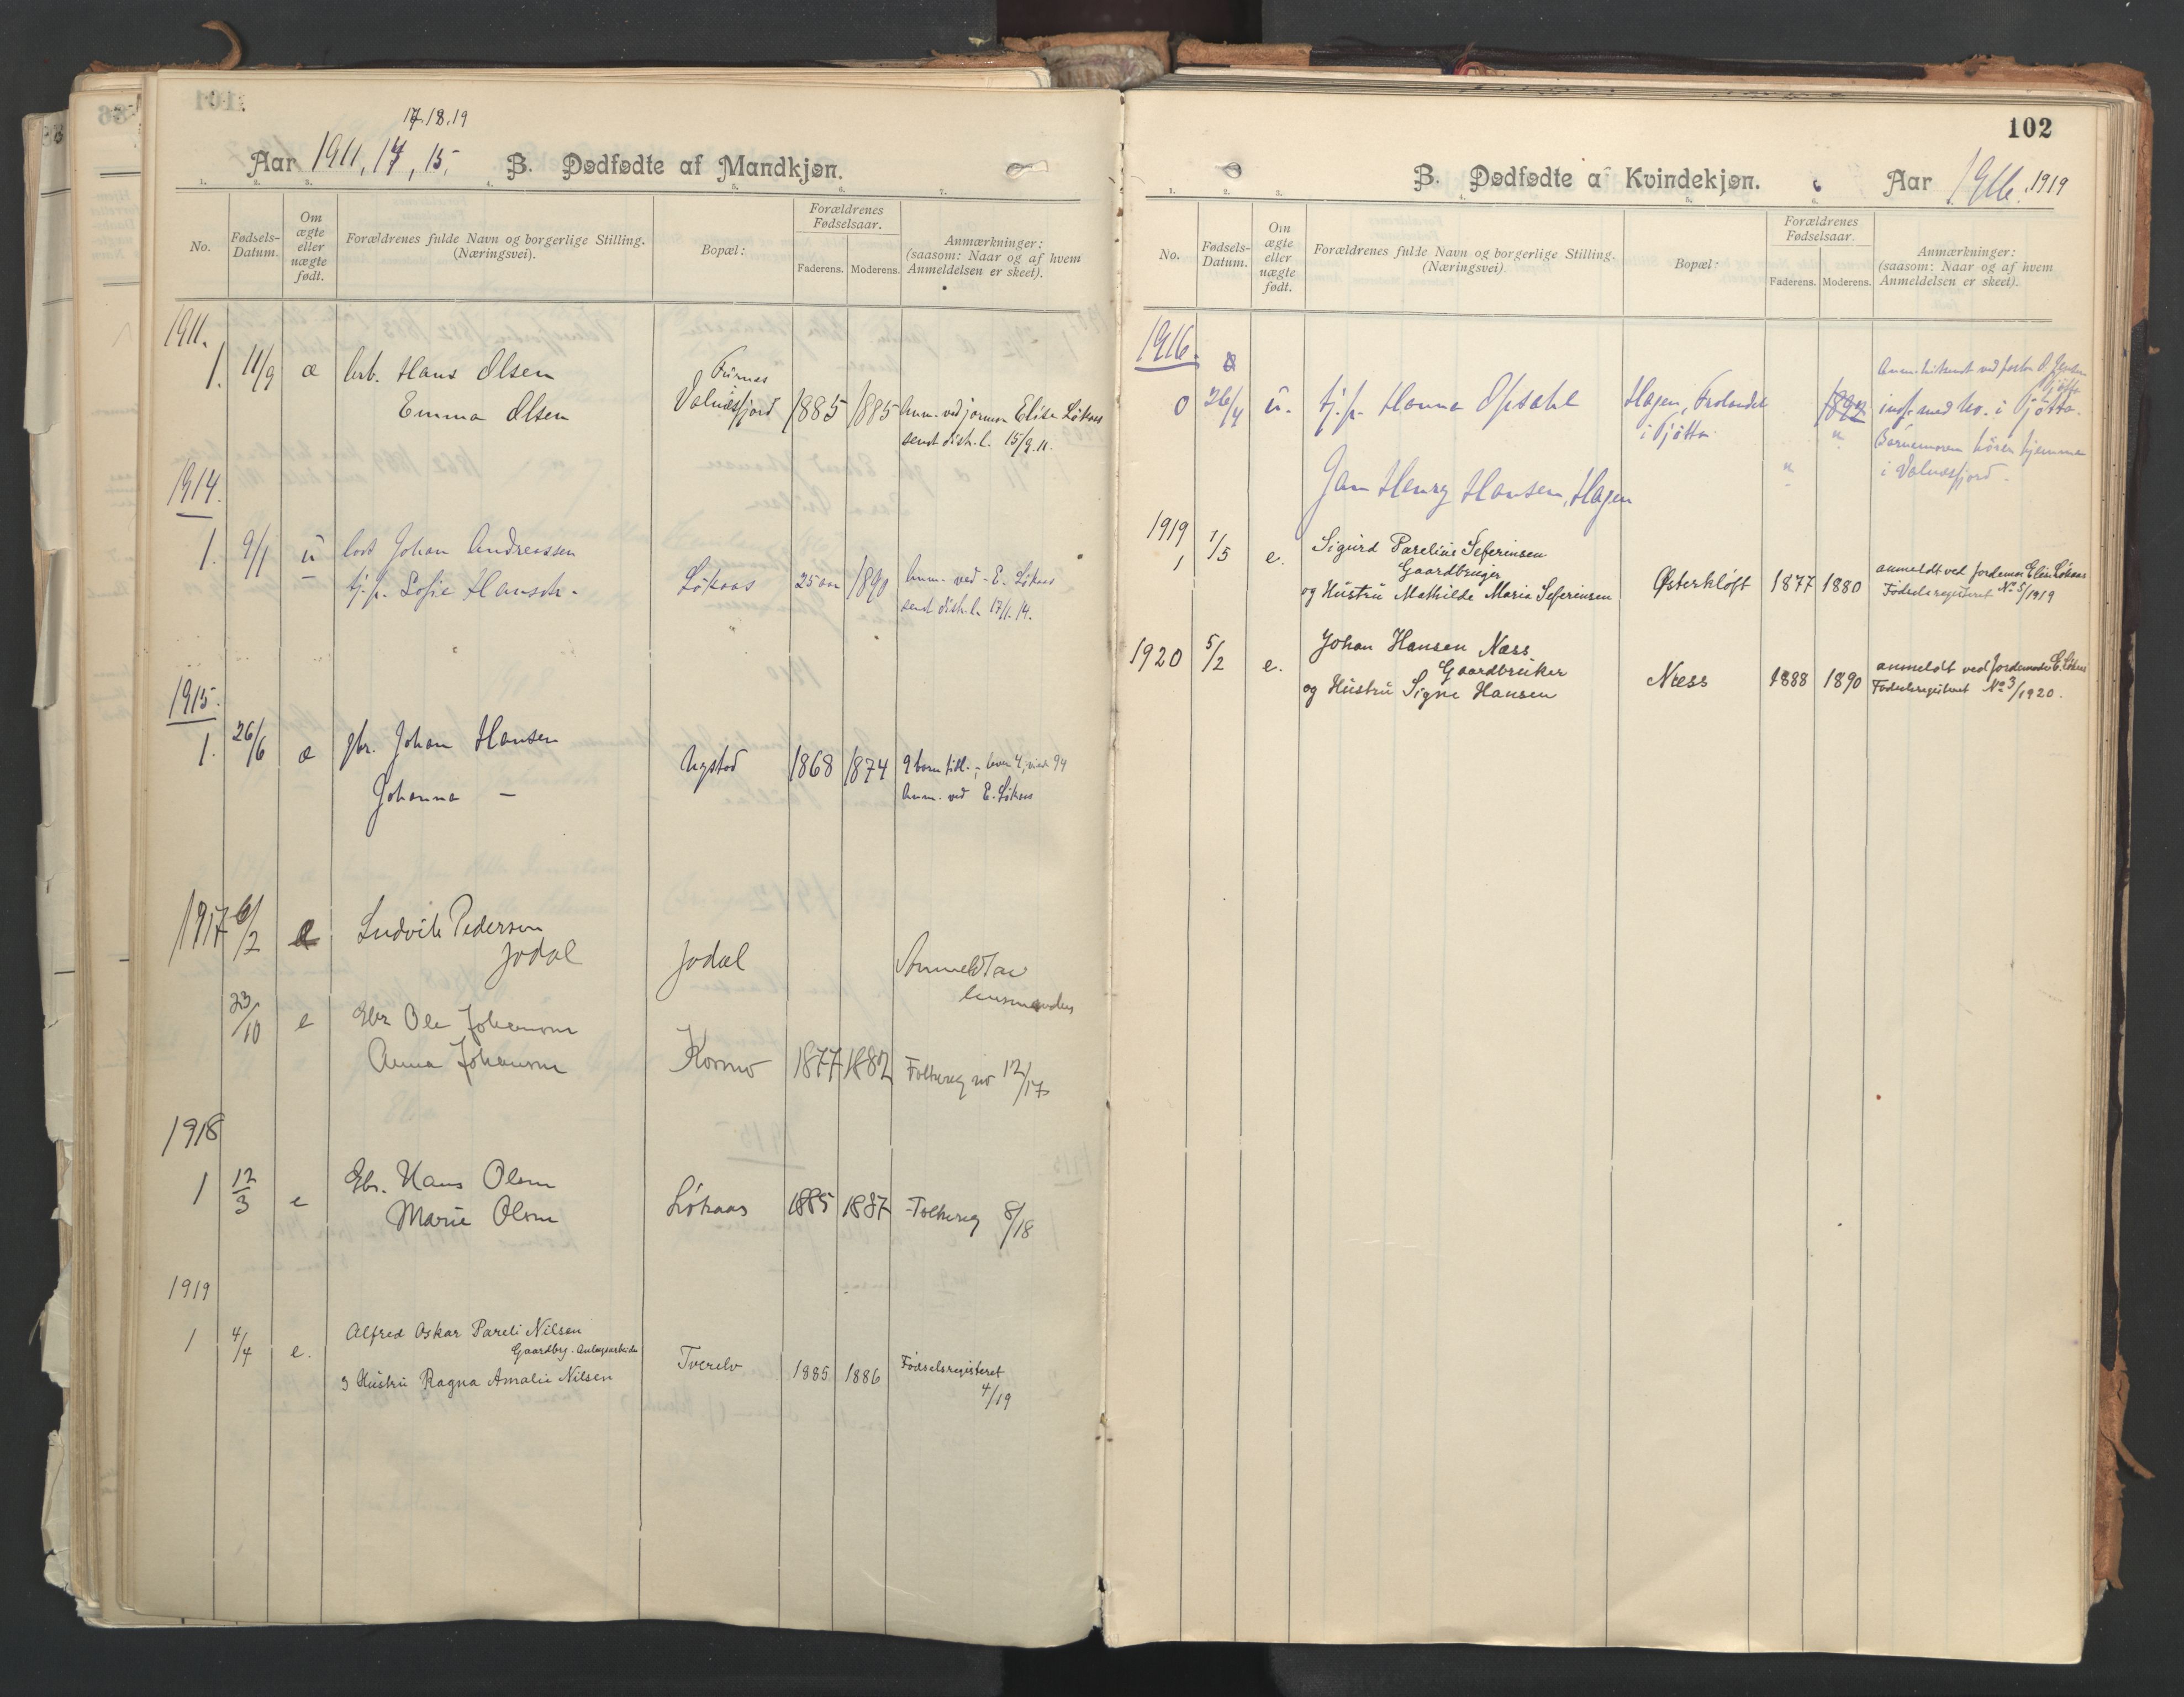 17.18.19
Aar 1911, 14, 15, B. Dødfødte af Mandkjøn.
1. 2. 3. 4. 5. 6. 7.
No.
Fødsels-Datum.
Om ægte eller uægte født.
Forældrenes fulde Navn og borgerlige Stilling.
(Næringsvei).
Bopæl:
Forældrenes Fødselsaar.
Faderens. Moderens.
Anmærkninger:
(saasom: Naar og af hvem
Anmeldelsen er skeet).
1911.
1. 11/9 æ Hans Olsen
Emma Olsen
Furnes
Valnesfjord 1885 1885 Anm. ved jormor Elise Løkaas
sendt distr.l. 15/9 11.
1914.
1. 9/1 u Johan Andreassen
tj.p. Sofie Hansdr. Løkaas 25 aar 1890 Anm. ved E. Løkaas
sendt distr.l. 17/1 14.
1915.
1. 26/6 æ gbr. Johan Hansen
Johanna — Nystad 1868 1874 9 børn tidl.
Anm. ved E. Løkaas
1917 6/2 e Ludvik Pedersen
Jodal Jodal Anmeldt av
lensmanden
23/10 e Gbr Ole Johansen
Anna Johansen Kosmo 1877 1882 Folkereg no 12/17
1918
1 12/3 e Gbr. Hans Olsen
Marie Olsen Løkaas 1885 1887 Folkereg 8/18
1919
1 4/4 e. Alfred Oskar Pareli Nilsen
Gaardbr. Anlægsarbeider
Hustru Ragna Amalie Nilsen Tverelv 1885 1886 Fødselsregisteret
4/19
102
B. Dødfødte af Kvindekjøn. Aar 1916. 1919
1. 2. 3. 4. 5. 6.
No.
Fødsels-Datum.
Om ægte eller uægte født.
Forældrenes fulde Navn og borgerlige Stilling.
(Næringsvei).
Bopæl:
Forældrenes Fødselsaar.
Faderens. Moderens.
Anmærkninger:
(saasom: Naar og af hvem
Anmeldelsen er skeet).
1916.
0 26/4 u. tj.p. Hanna Opsahl Hagen,
i Tjøtta 1892 i Tjøtta.
Barnemoren hører hjemme
i Valnesfjord.
Jan Henry Hansen, Hagen
1919
1 1/5 e. Sigurd Parelius Seferinsen
Gaardbruger
og Hustru Mathilde Maria Seferinsen Østerkløft 1877 1880 anmeldt ved Jordemor Elise Løkaas
Fødselsregisteret No 5/1919
1920 5/2 e. Johan Hansen Næss
Gaardbruker
og Hustru Signe Hansen Næss 1888 1890 anmeldt ved Jordemoder E. Løkaas
Fødselsregisteret No 3/1920.